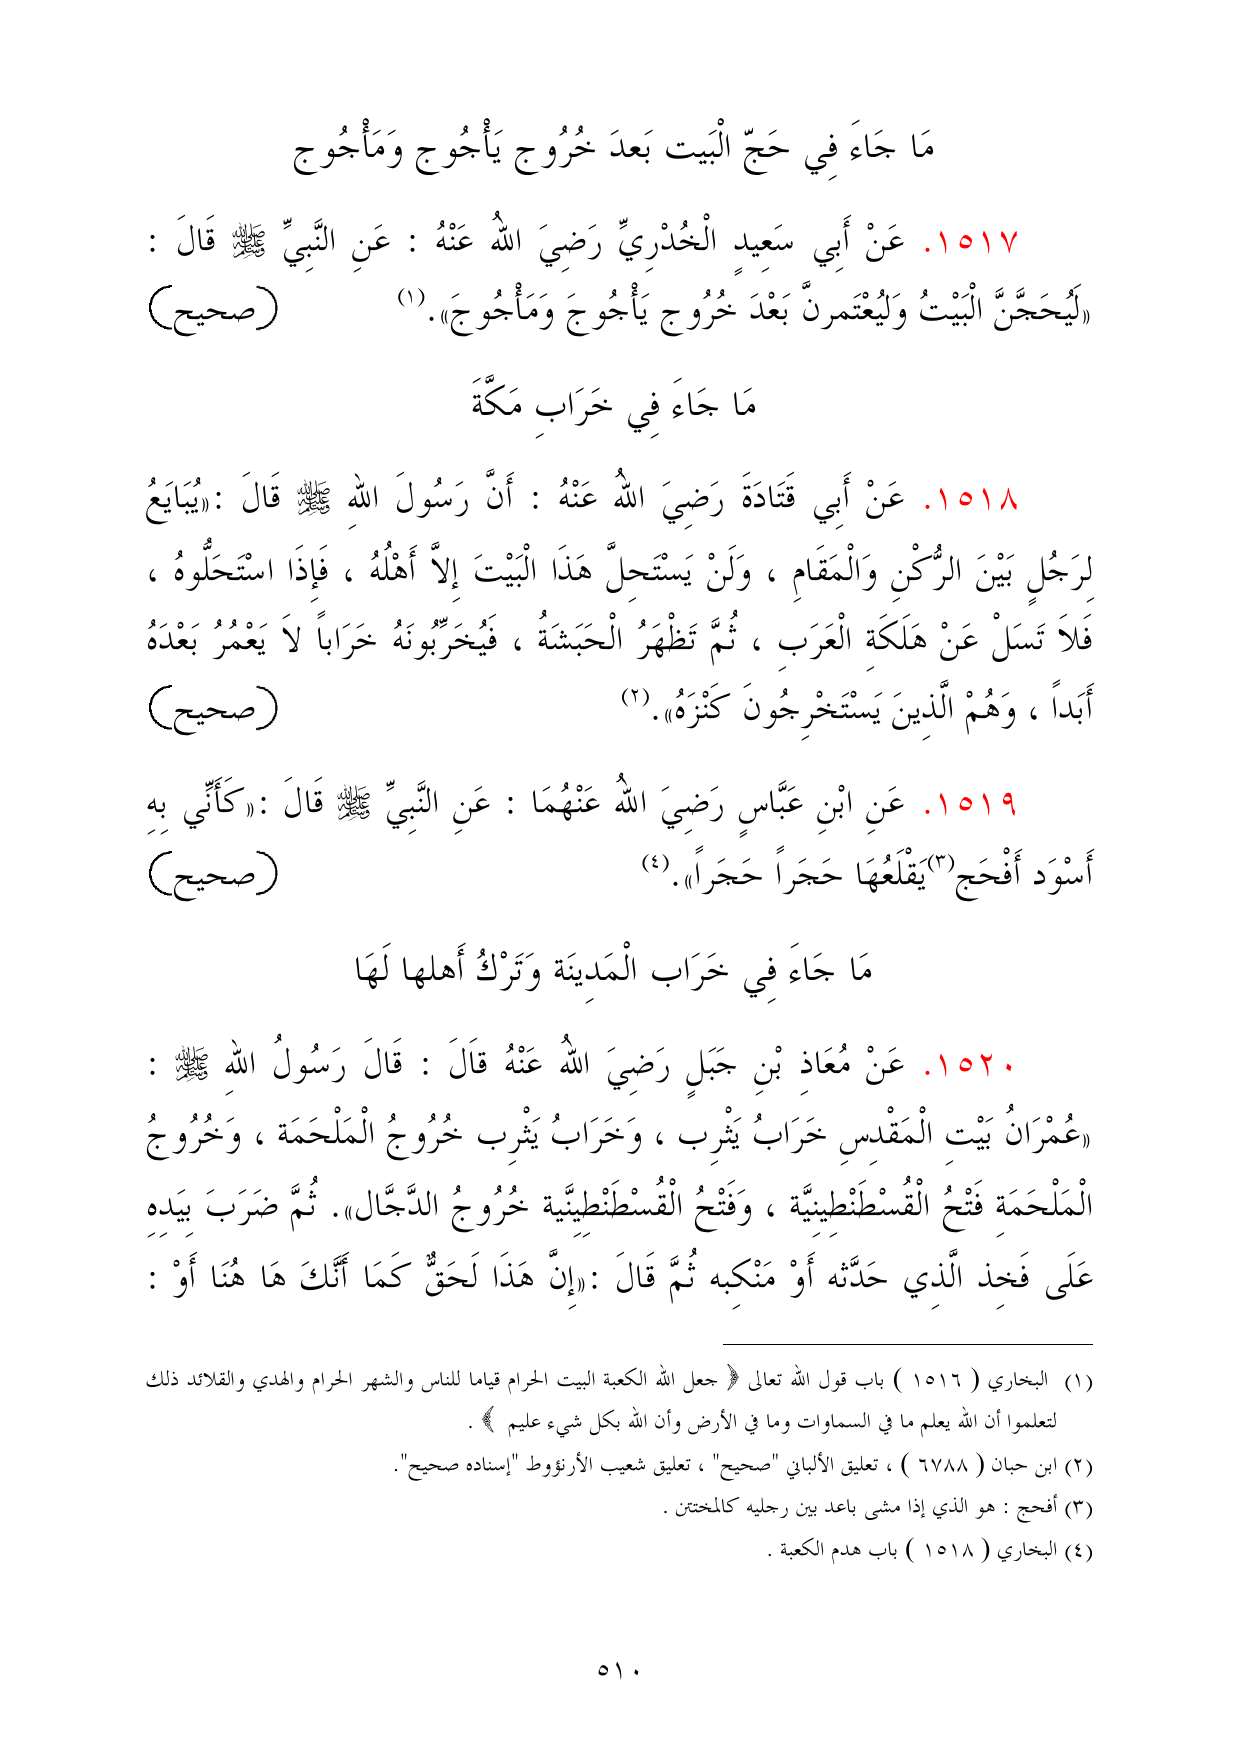 مَا جَاءَ فِي حَجّ الْبَيت بَعدَ خُرُوج يَأْجُوج وَمَأْجُوج
١٥١٧. عَنْ أَبِي سَعِيدٍ الْخُدْرِيِّ رَضِيَ اللهُ عَنْهُ : عَنِ النَّبِيِّ ﷺ قَالَ :
«لَيُحَجَّنَّ الْبَيْتُ وَلَيُعْتَمرنَّ بَعْدَ خُرُوج يَأْجُوجَ وَمَأْجُوجَ».(١) (صحيح)
مَا جَاءَ فِي خَرَابِ مَكَّةَ
١٥١٨. عَنْ أَبِي قَتَادَةَ رَضِيَ اللهُ عَنْهُ : أَنَّ رَسُولَ اللهِ ﷺ قَالَ :«يُبَايَعُ
لِرَجُلٍ بَيْنَ الرُّكْنِ وَالْمَقَامِ ، وَلَنْ يَسْتَحِلَّ هَذَا الْبَيْتَ إِلاَّ أَهْلُهُ ، فَإِذَا اسْتَحَلُّوهُ ،
فَلاَ تَسَلْ عَنْ هَلَكَةِ الْعَرَبِ ، ثُمَّ تَظْهَرُ الْحَبَشَةُ ، فَيُخَرِّبُونَهُ خَرَاباً لاَ يَعْمُرُ بَعْدَهُ
أَبَداً ، وَهُمْ الَّذِينَ يَسْتَخْرِجُونَ كَنْزَهُ».(٢) (صحيح)
١٥١٩. عَنِ ابْنِ عَبَّاسٍ رَضِيَ اللهُ عَنْهُمَا : عَنِ النَّبِيِّ ﷺ قَالَ :«كَأَنِّي بِهِ
أَسْوَد أَفْحَج(٣)يَقْلَعُهَا حَجَراً حَجَراً».(٤) (صحيح)
مَا جَاءَ فِي خَرَاب الْمَدِينَة وَتَرْكُ أَهلها لَهَا
١٥٢٠. عَنْ مُعَاذِ بْنِ جَبَلٍ رَضِيَ اللهُ عَنْهُ قاَلَ : قَالَ رَسُولُ اللهِ ﷺ :
«عُمْرَانُ بَيْتِ الْمَقْدِسِ خَرَابُ يَثْرِب ، وَخَرَابُ يَثْرِب خُرُوجُ الْمَلْحَمَة ، وَخُرُوجُ
الْمَلْحَمَةِ فَتْحُ الْقُسْطَنْطِينِيَّة ، وَفَتْحُ الْقُسْطَنْطِينِيَّة خُرُوجُ الدَّجَّال». ثُمَّ ضَرَبَ بِيَدِهِ
عَلَى فَخِذ الَّذِي حَدَّثه أَوْ مَنْكِبه ثُمَّ قَالَ :«إِنَّ هَذَا لَحَقٌّ كَمَا أَنَّكَ هَا هُنَا أَوْ :
(١) البخاري ( ١٥١٦ ) باب قول الله تعالى ﴿ جعل الله الكعبة البيت الحرام قياما للناس والشهر الحرام والهدي والقلائد ذلك
لتعلموا أن الله يعلم ما في السماوات وما في الأرض وأن الله بكل شيء عليم ﴾ .
(٢) ابن حبان ( ٦٧٨٨ ) ، تعليق الألباني "صحيح" ، تعليق شعيب الأرنؤوط "إسناده صحيح".
(٣) أفحج : هو الذي إذا مشى باعد بين رجليه كالمختتن .
(٤) البخاري ( ١٥١٨ ) باب هدم الكعبة .
٥١٠